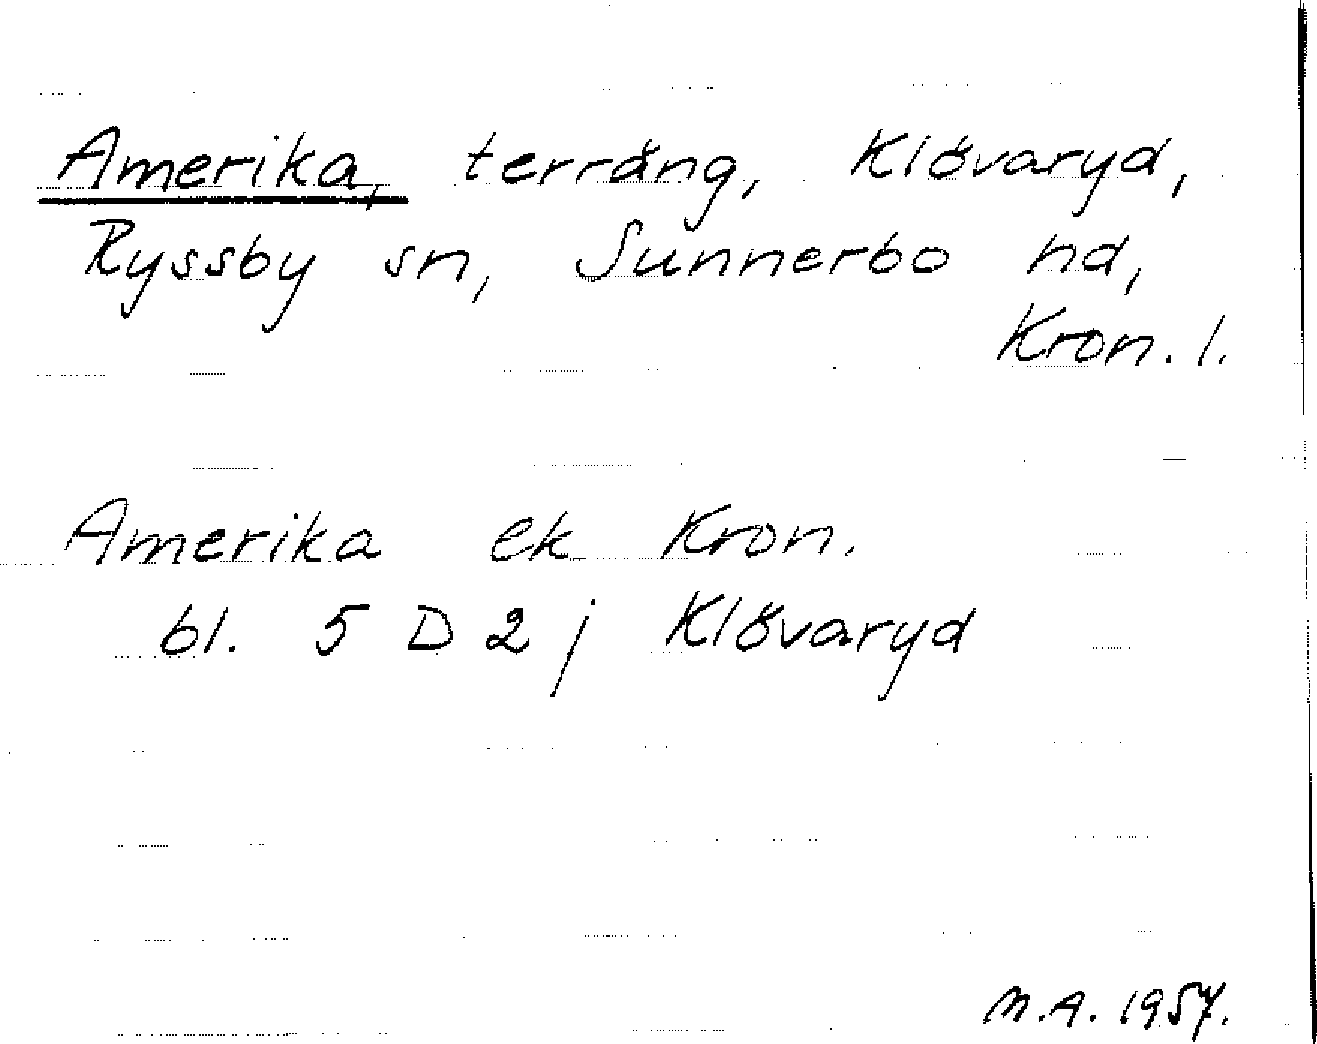 Amerika, terräng, Klövaryd,
Ryssby sn, Sunnerbo hd,
Kron. l.
Amerika ek Kron.
bl. 5 D 2 j Klövaryd
M.A. 1957.